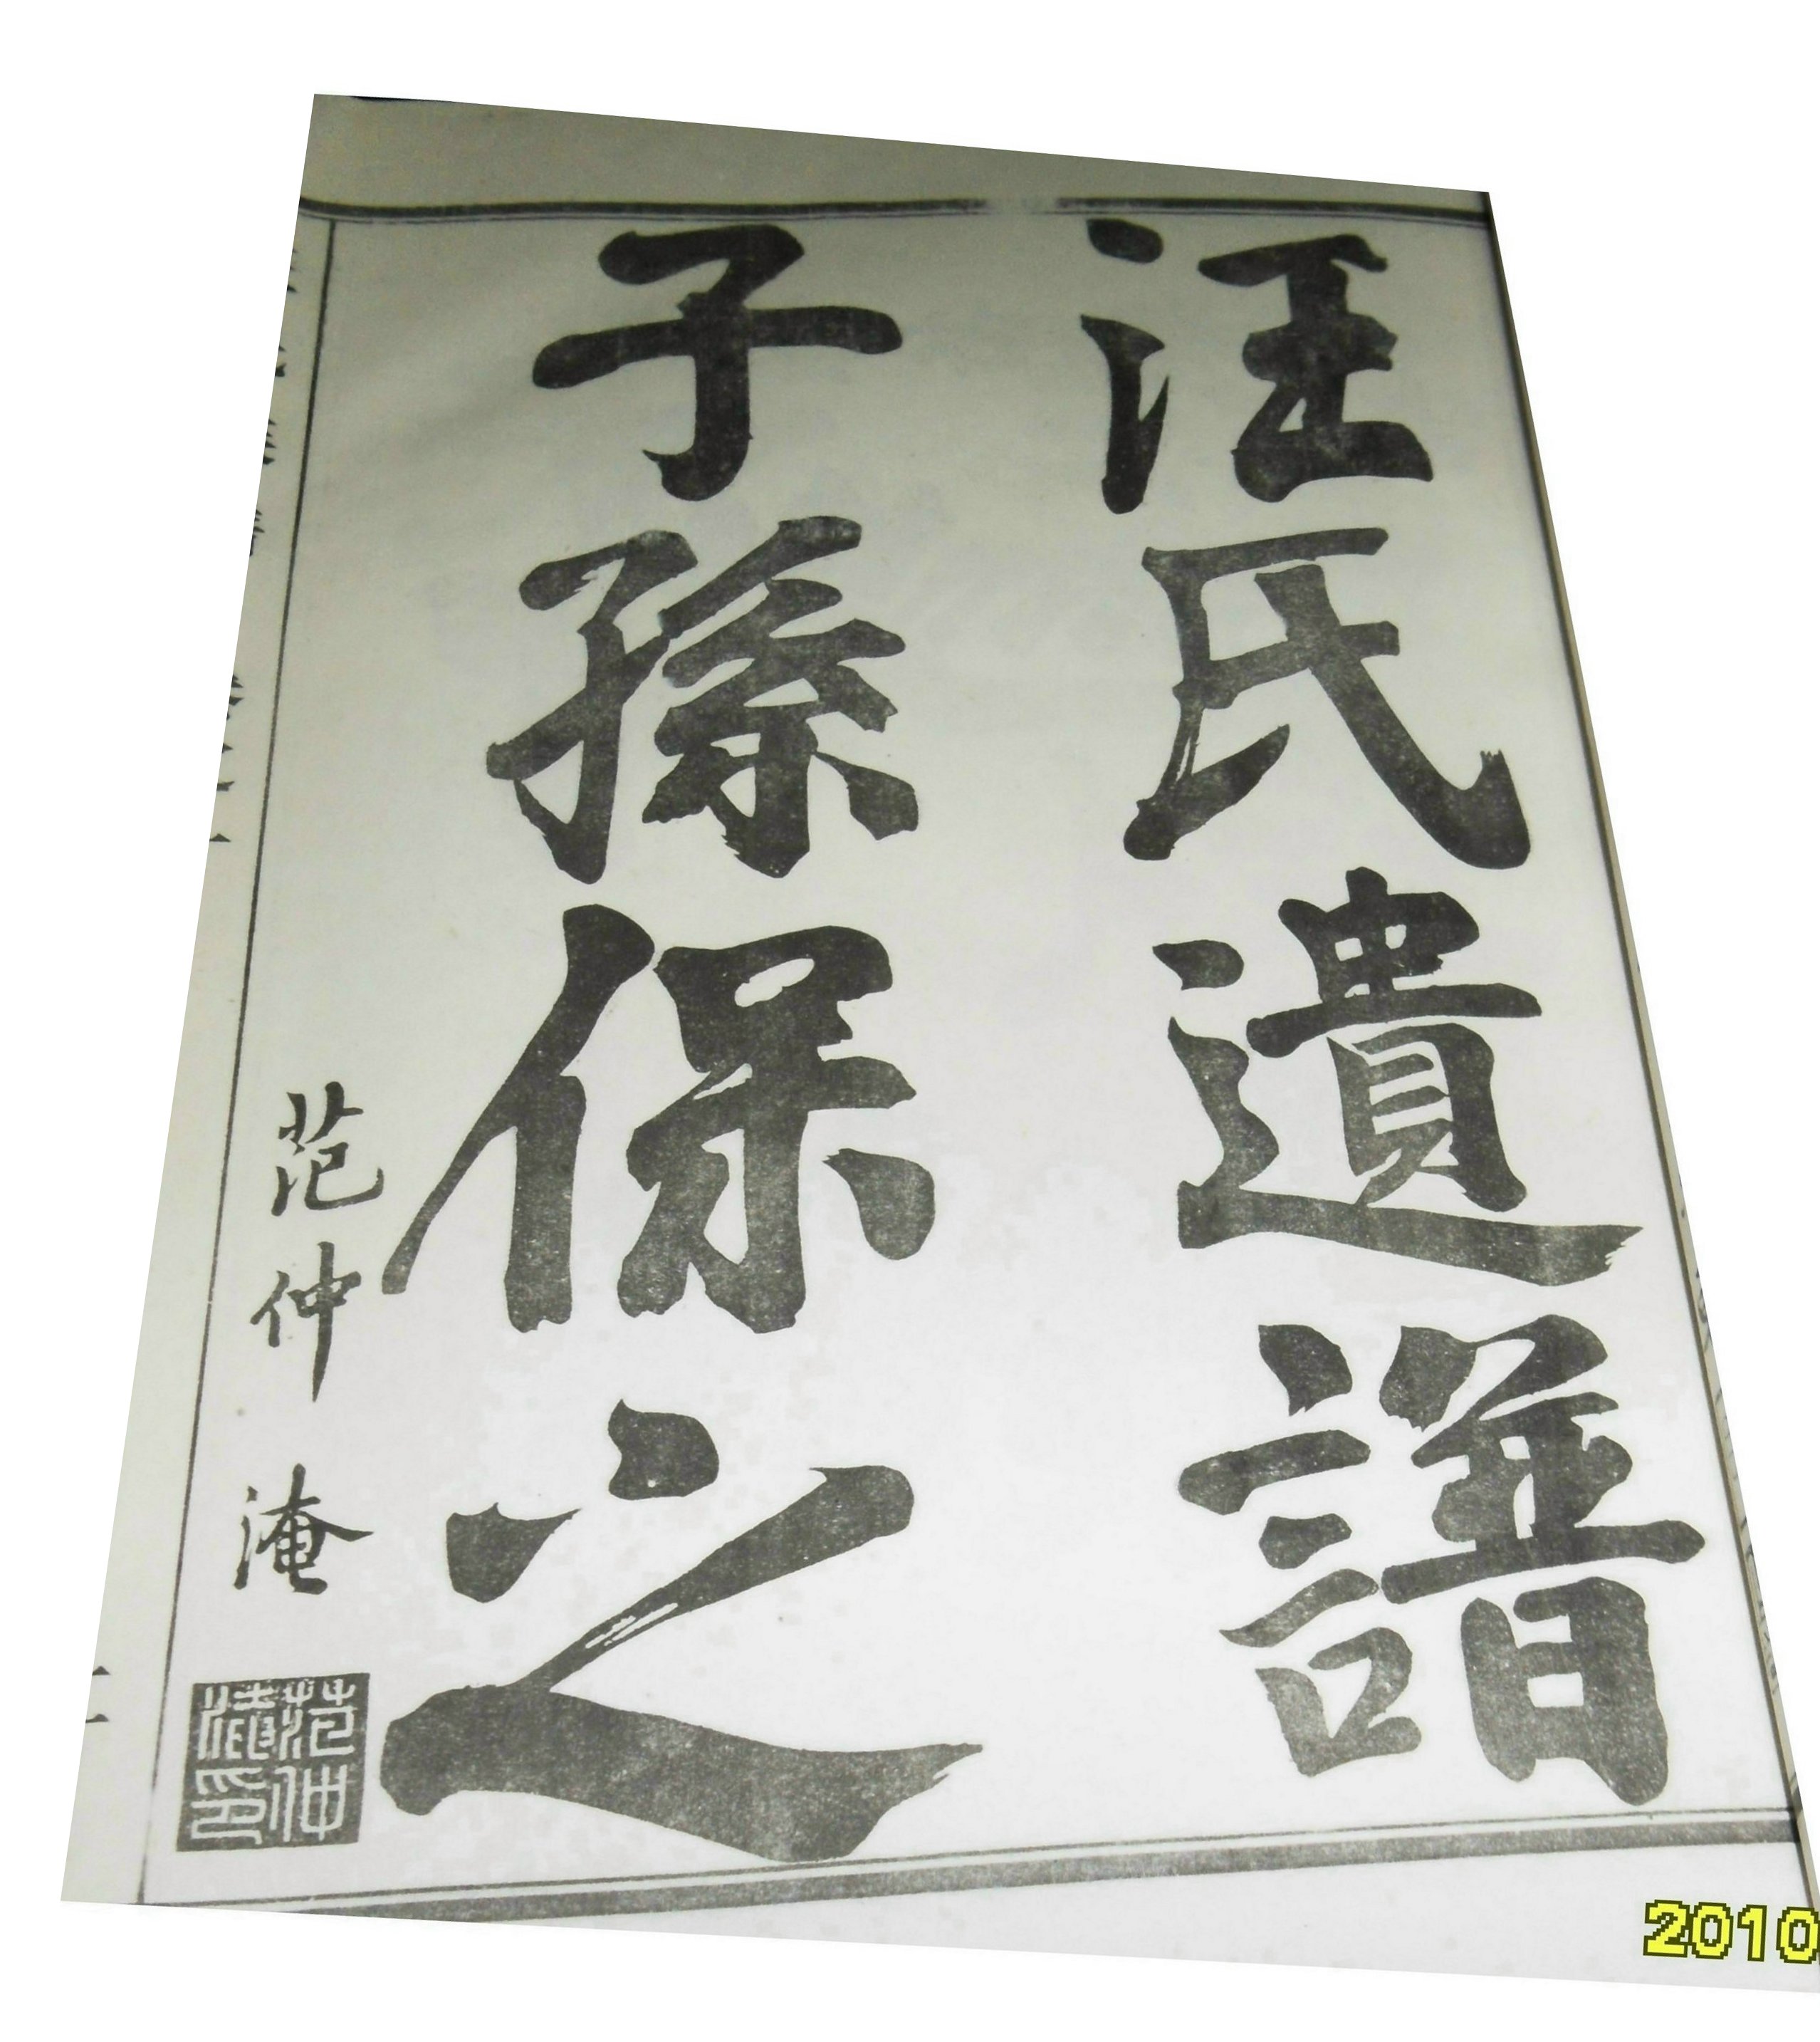 汪氏遺譜
子孫保之
范仲淹
范仲
淹印
2010